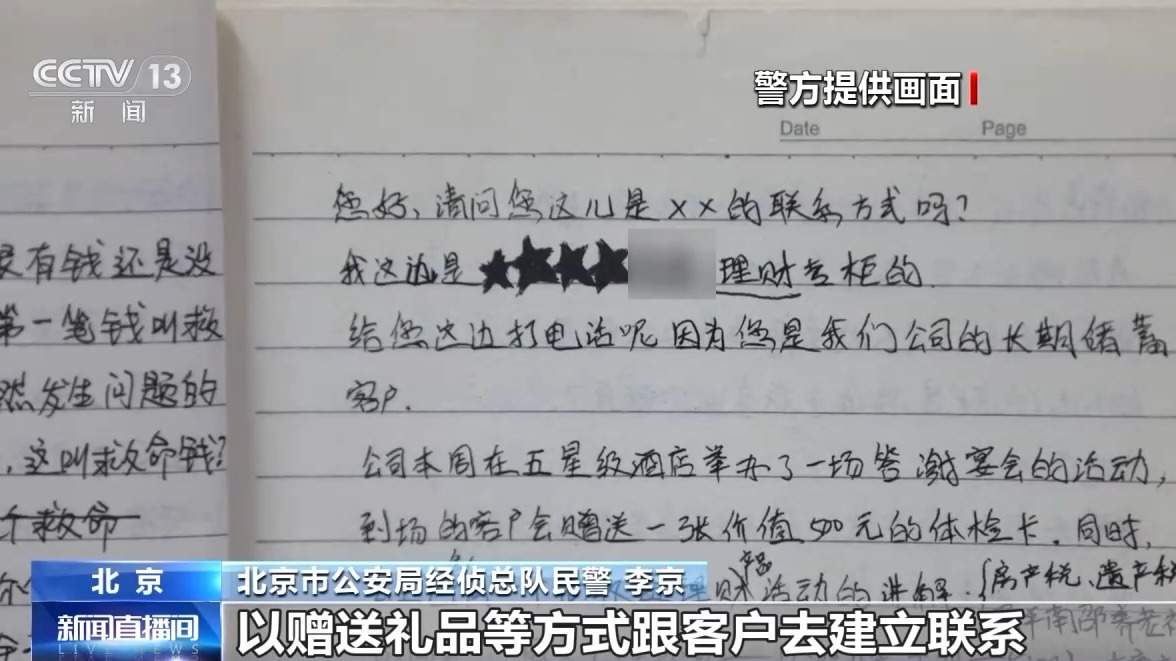 CCTV 13
新闻
警方提供画面
Date Page
您好、请问您这儿是××的联系方式吗?
我这边是 理财专柜的
给您这边打电话呢因为您是我们公司的长期储蓄
客户.
公司本周在五星级酒店举办了一场答谢宴会的活动,
到场的客户会赠送一张价值500元的体检卡.同时,
财 活动的讲解.(房产税、遗产税
有钱还是没
第一笔钱叫救
然发生问题的
,这叫救命钱?
个救命
北京
北京市公安局经侦总队民警 李京
新闻直播间
LIVE NEWS
以赠送礼品等方式跟客户去建立联系